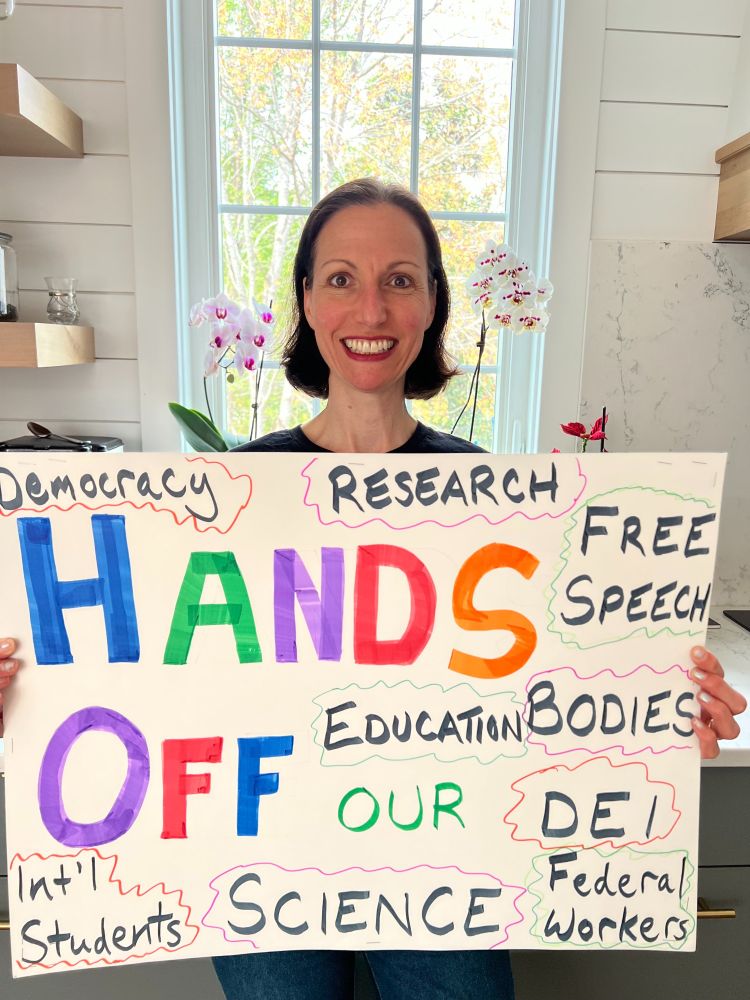 Democracy
RESEARCH
FREE
SPEECH
HANDS
EDUCATION
BODIES
OFF
OUR
DEI
Int'l
Students
SCIENCE
Federal
Workers